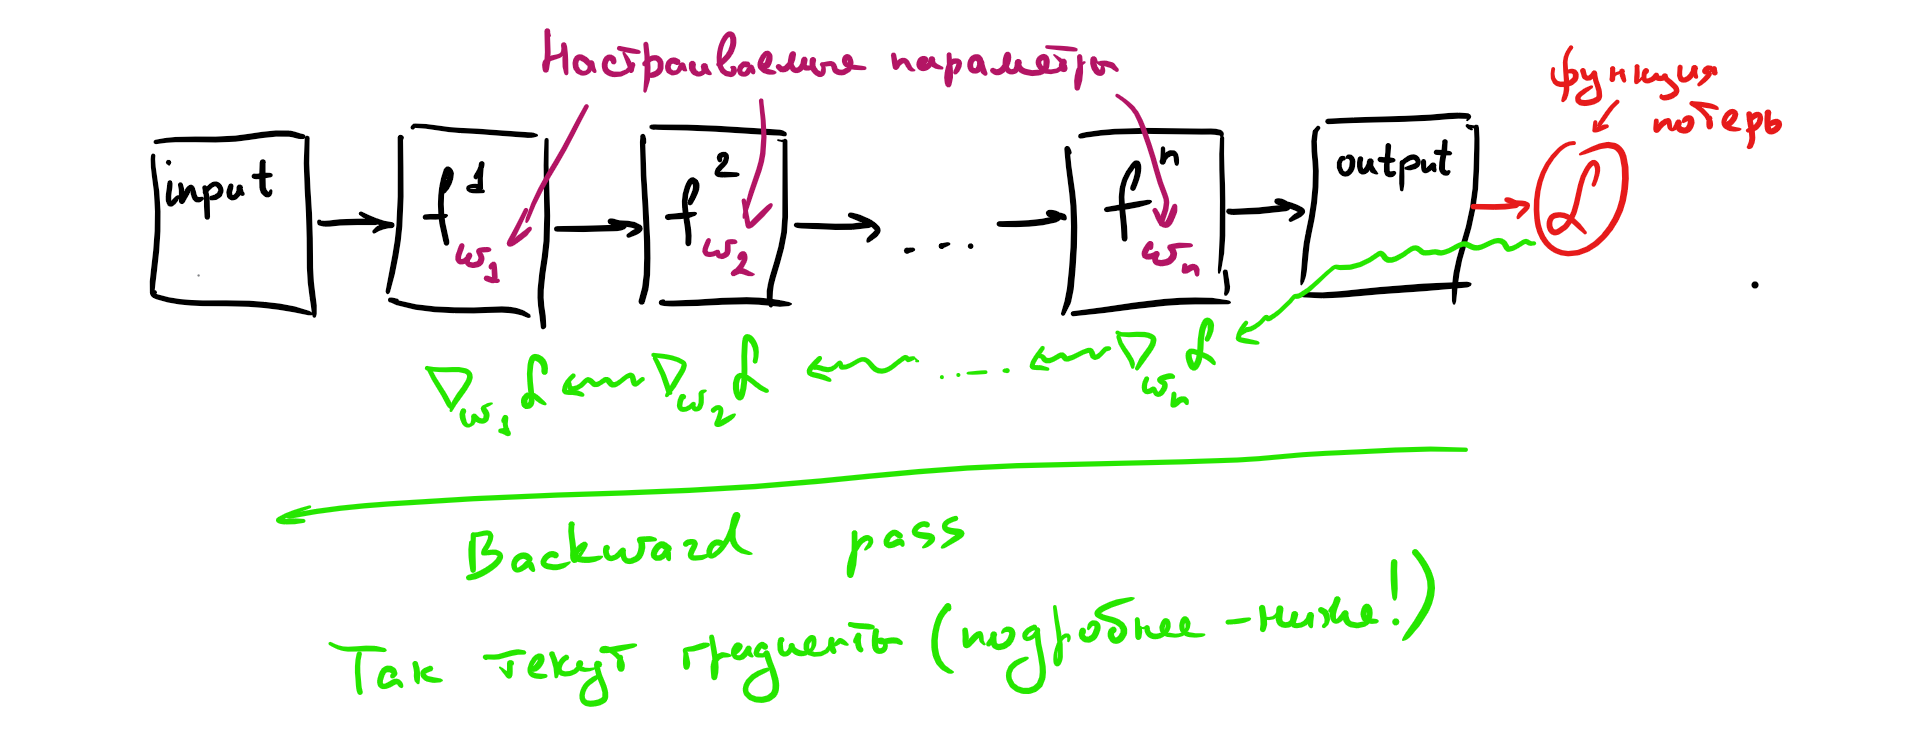 Настраиваемые параметры
функция
потерь
input
f¹
w₁
f²
w₂
. . . .
fⁿ
wₙ
output
ℒ
∇w₁ℒ
∇w₂ℒ
.....
∇wₙℒ
Backward pass
Так текут градиенты (подробнее - ниже!)